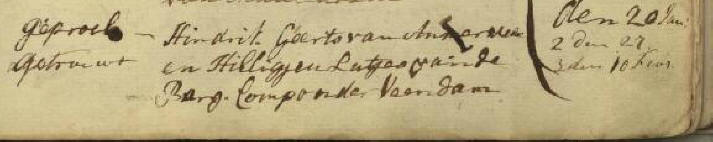 geprocl — Hindrik Geerts van
getrouwt en Hilligjen Lutjes van de
Barg. Comp onder Veendam
den 20 Jan:
2 den 27
3 den 10